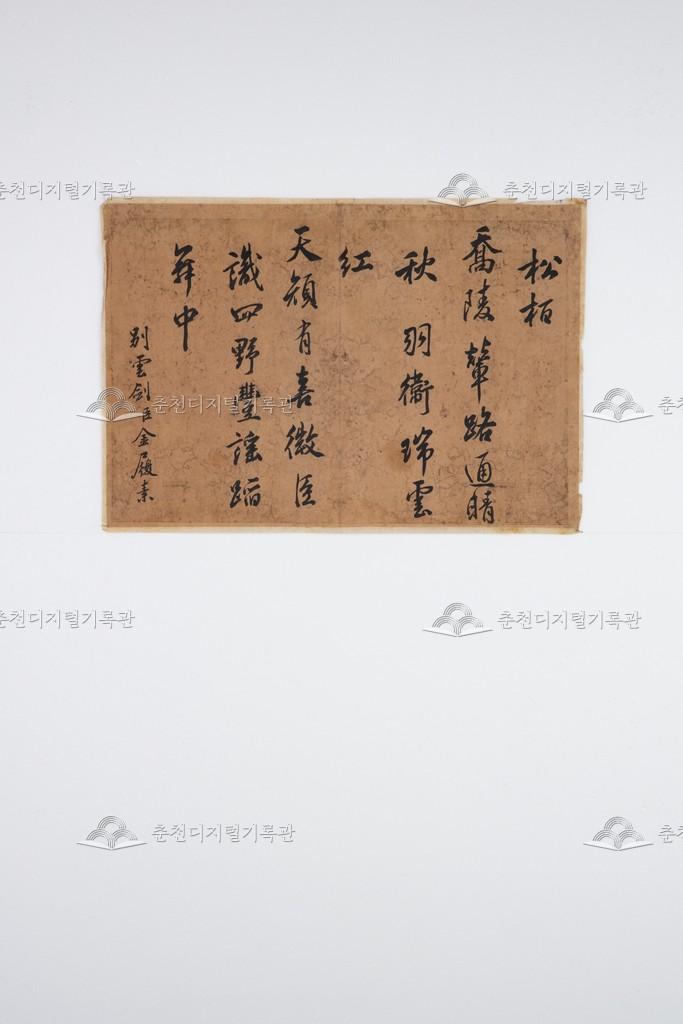 松栢
喬陵輦路通晴
秋羽衛瑞雲
紅
天顔有喜微臣
識四野豐謠蹈
舞中
別雲劍臣金履素
춘천디지털기록관
춘천디지털기록관
춘천디지털기록관
춘천
춘천디지털기록관
춘천디지털기록관
춘천디지털기록관
춘천